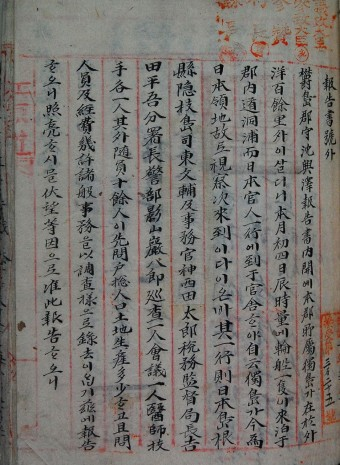 報告書號外
欝島郡守沈興澤報告書內開에本郡所屬獨島가在於外
洋百餘里外이살더니本月初四日辰時量에輪船一隻이來泊于
郡內道洞浦而日本官人一行에到于官舍ᄒᆞ야自云獨島가今爲
日本領地故로視察次來到이다이온바其一行則日本島根
縣隱岐島司東文輔及事務官神西田太郎稅務監督局長吉
田平吾分署長警部影山巖八郎巡査一人會議一人醫師技
手各一人其外隨員十餘人이先問戶摠人口土地生産多少ᄒᆞ고且問
人員及經費幾許諸般事務을以調査樣으로錄去이ᄋᆞᆸ기玆에報告
ᄒᆞ오니照亮ᄒᆞ시믈伏望等因으로准此報告ᄒᆞ오니